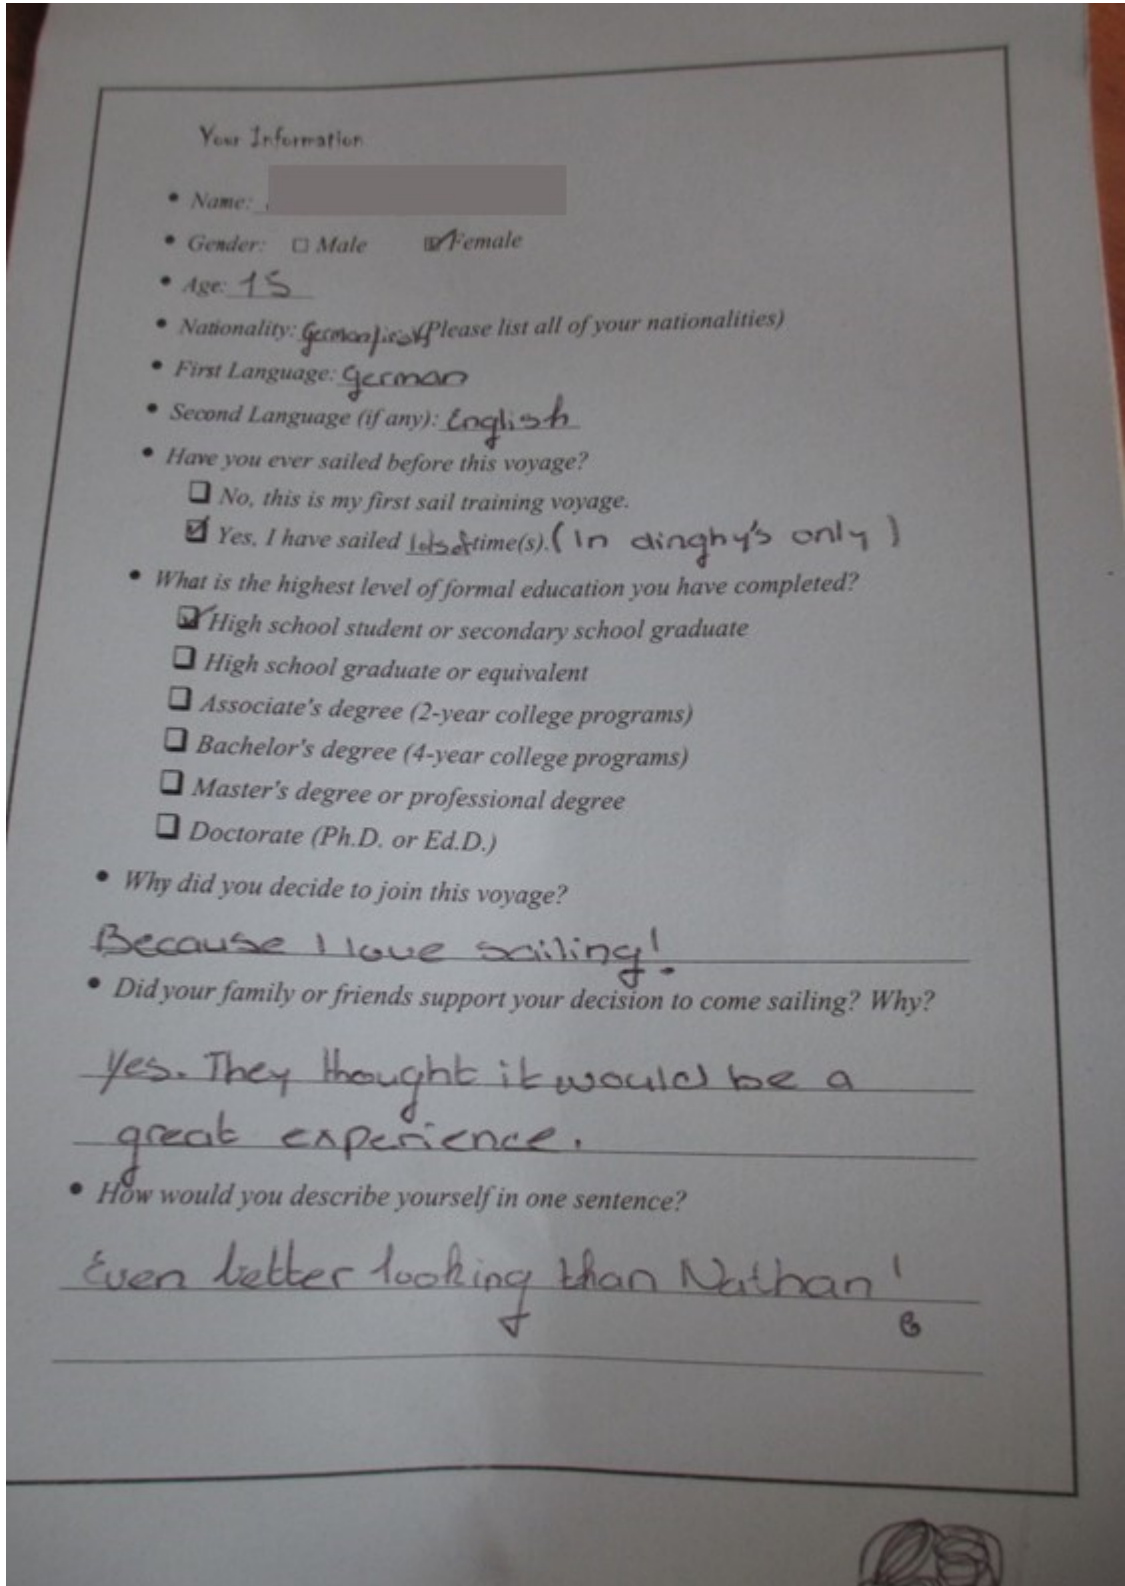 Your Information
• Name:
• Gender: ☐ Male ☑ Female
• Age: 15
• Nationality: German/Irish (Please list all of your nationalities)
• First Language: German
• Second Language (if any): English
• Have you ever sailed before this voyage?
☐ No, this is my first sail training voyage.
☑ Yes, I have sailed lots of time(s). (In dinghy's only)
• What is the highest level of formal education you have completed?
☑ High school student or secondary school graduate
☐ High school graduate or equivalent
☐ Associate's degree (2-year college programs)
☐ Bachelor's degree (4-year college programs)
☐ Master's degree or professional degree
☐ Doctorate (Ph.D. or Ed.D.)
• Why did you decide to join this voyage?
Because I love sailing!
• Did your family or friends support your decision to come sailing? Why?
Yes. They thought it would be a
great experience.
• How would you describe yourself in one sentence?
Even better looking than Nathan!